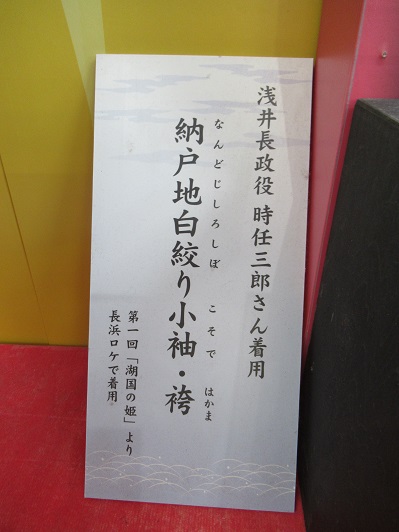 浅井長政役 時任三郎さん着用
なんどじしろしぼ こそで はかま
納戸地白絞り小袖・袴
第一回「湖国の姫」より
長浜ロケで着用。